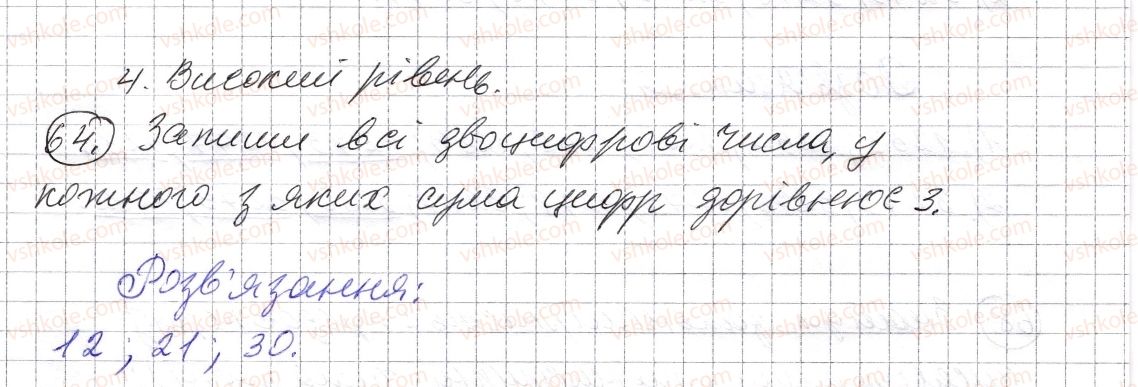 4. Високий рівень.
64. Запиши всі двоцифрові числа, у
кожного з яких сума цифр дорівнює 3.
Розв'язання:
12; 21; 30.